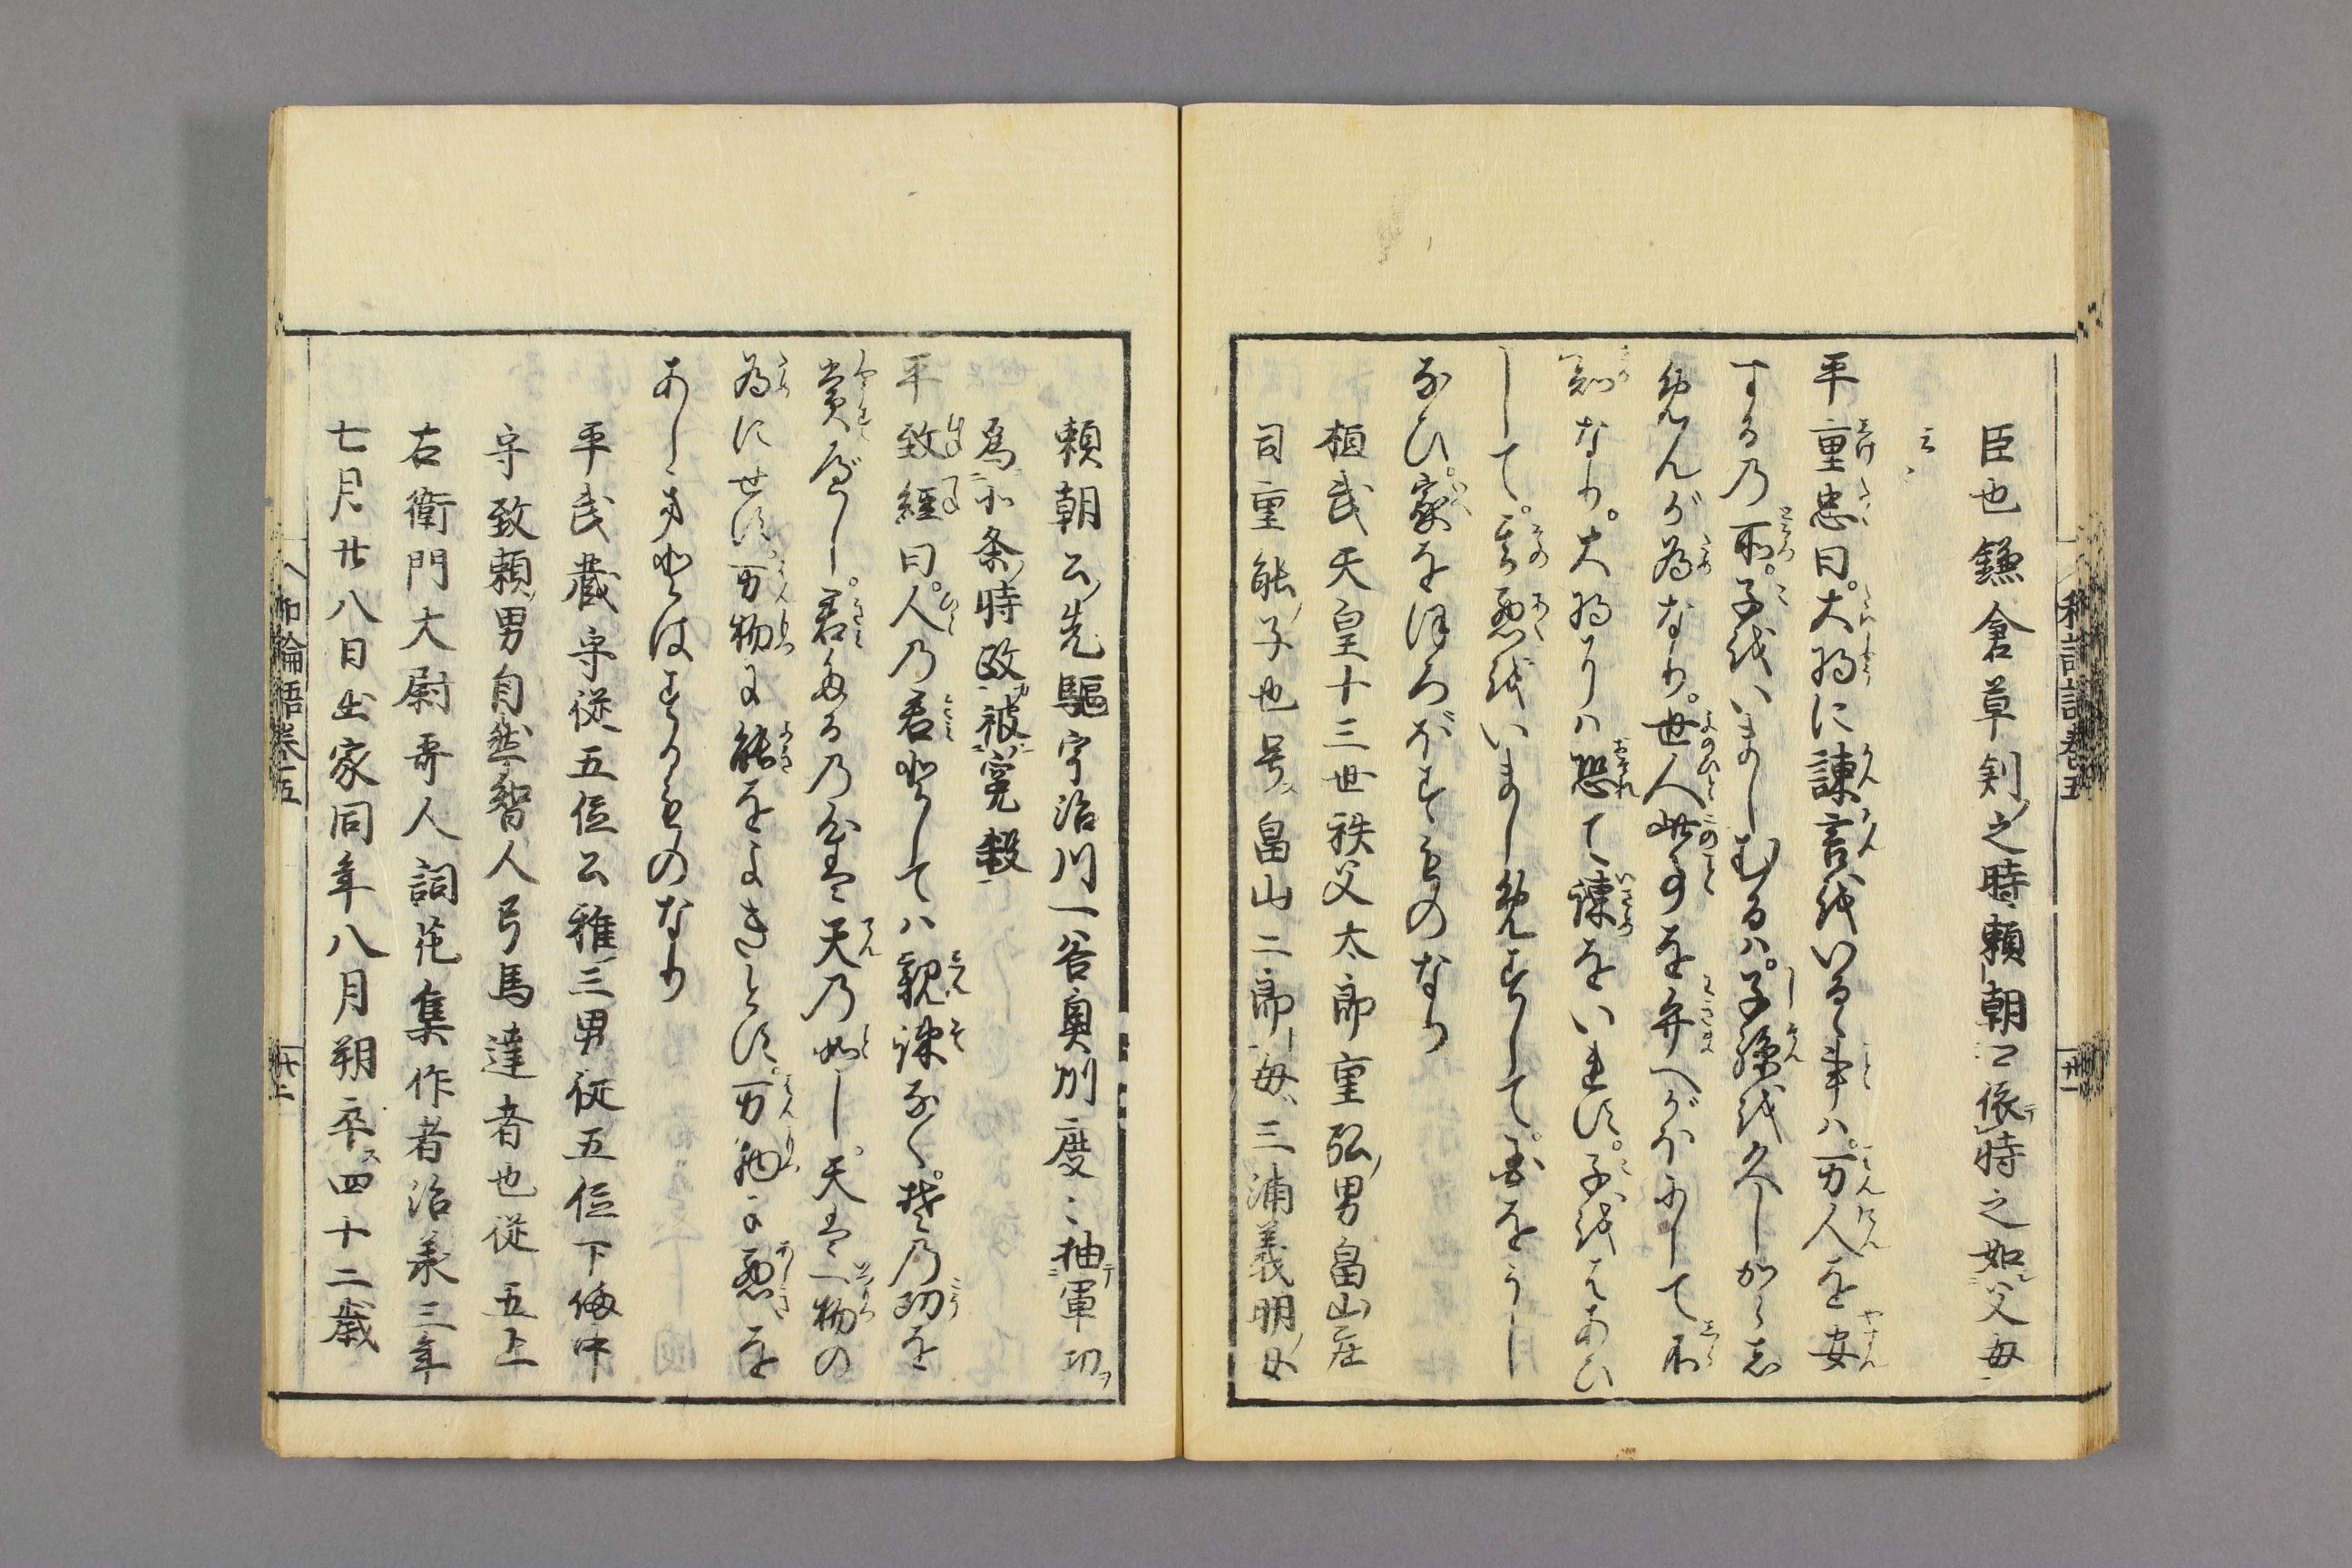 臣也鎌倉草創ノ之時頼朝ニ依テ時之如父母
云々
平重忠曰。大将に諫言をいるゝ事ハ。万人を安
する乃所。子をいましむるハ。子孫を久しからし
めんが為なり。世人此事を弁へがほにして不
知なり。大将よりハ恐て諫をいれず。子をばあひ
して。其悪をいましめずして。国をうし
なひ。家をほろぼすものなり
桓武天皇十三世秩父太郎重弘ノ男畠山庄
司重能ノ子也号ス畠山二郎ト母ハ三浦義明ノ女
和論語巻五
廿一
頼朝公ノ先驅宇治川一谷奥州度々抽テ軍功ヲ
為ニ小条ノ時政カ被寃殺
平致經曰。人乃君としてハ親疎なく。其乃功を
賞すべし。君たる乃台は天乃如し。天は一物の
為に世ず。万物に能をよきとす。万物に悪を
あしきとはするものなり
平武蔵守従五位公雅ノ三男従五位下備中
守致頼ノ男自然ノ智人弓馬達者也従五上
右衛門大尉哥人詞花集作者治承三年
七月廿八日出家同年八月朔卒ス四十二歳
和論語巻五
廿二